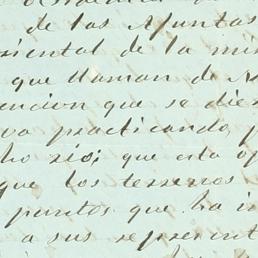 de las Apuntas
oriental de la mi
que llaman de
encion que se die
va practicando, p
ho rio; que esta o
que los terrenos
puntos que ha i
a sus represent